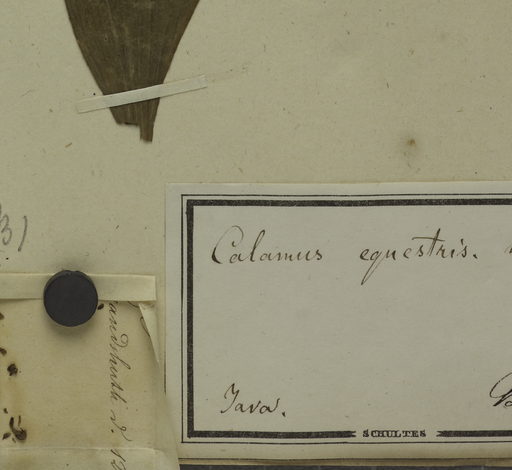 3)
Calamus equestris.
Java.
SCHULTES